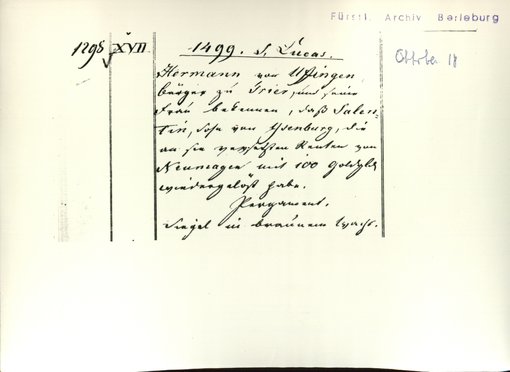 Fürstl. Archiv Berleburg
1298 XVII 1499. S. Lucas.
Oktober 18
Hermann von Uffingen
bürger zu Trier, und seine
Frau bekennen, daß Salen-
tin, Sohn von Ysenburg, die
an sie versetzten Renten von
Neumagen mit 100 Goldgld
wiedergelöst habe.
Pergament.
Siegel in braunem Wachs.